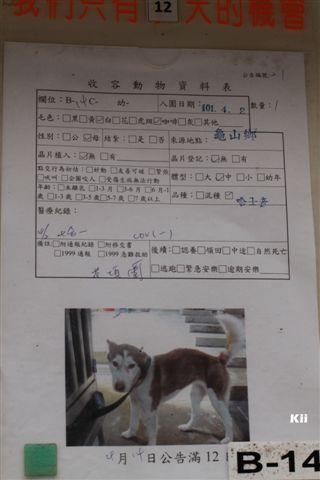 我們只有 12 天的機會
公告編號:-1
收容動物資料表
欄位:B-14 C- 幼- 入園日期:101.4.2 數量:1
毛色:□黑□黃□白□花□虎斑☑咖啡□灰□其他
性別:□公☑母 結紮:□是□否 來源地點:龜山鄉
晶片植入:☑無□有 晶片登記:☑無□有
體型:□大☑中□小□幼年
年齡:□未離乳□1-3月□3-6月□6月-1歲□1-3歲□3-5歲□5-7歲□7歲以上
品種:□混種☑哈士奇
醫療紀錄:
備註:□附通報紀錄□附移交書
□1999通報□1999急難救助
後續:□認養□領回□中途□自然死亡
□逃跑□緊急安樂□逾期安樂
4月14日公告滿12日
B-14
Kii